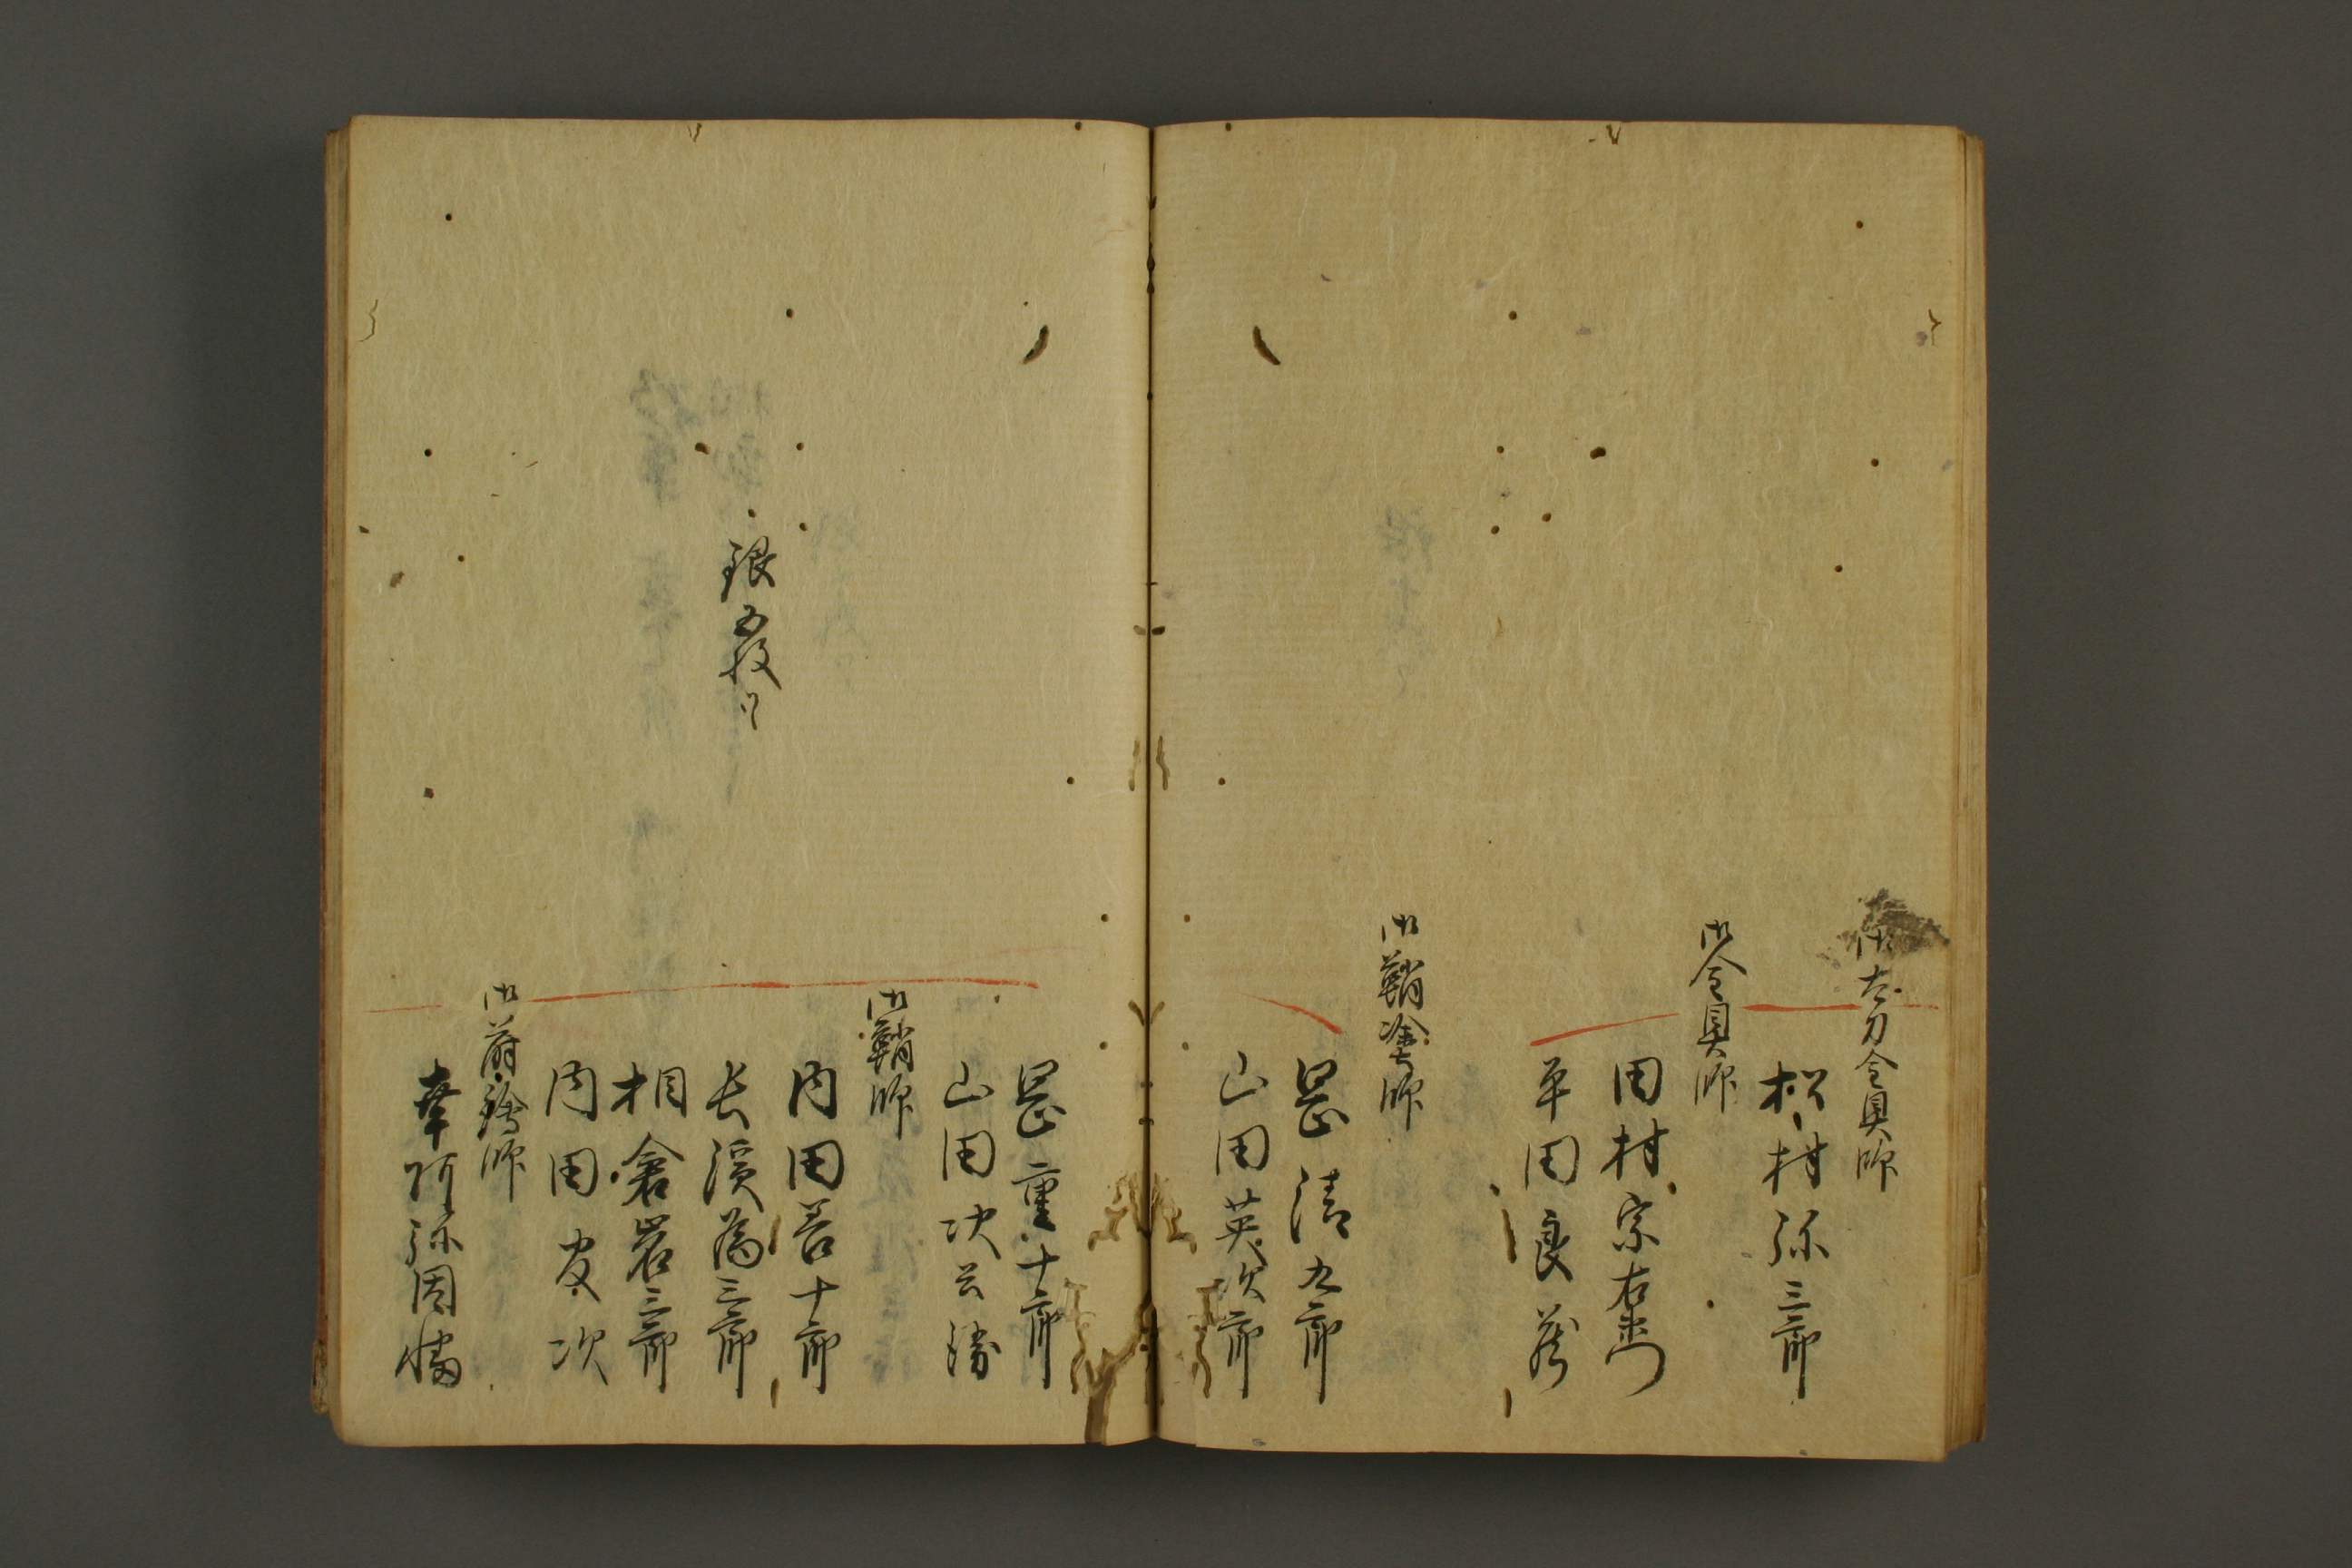 御太刀金具師
松村弥三郎
御金具師
田村宗右衛門
平田良蔵
御鞘塗師
岡清九郎
山田英次郎
岡重十郎
山田次云
御鞘師
内田善十郎
銀五枚ツヽ
長濱為三郎
相倉岩三郎
内田友次
御蒔絵師
幸阿弥因幡